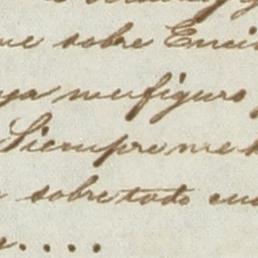 ue sobre Enci
ya me figuro
Siempre me
sobre todo cua